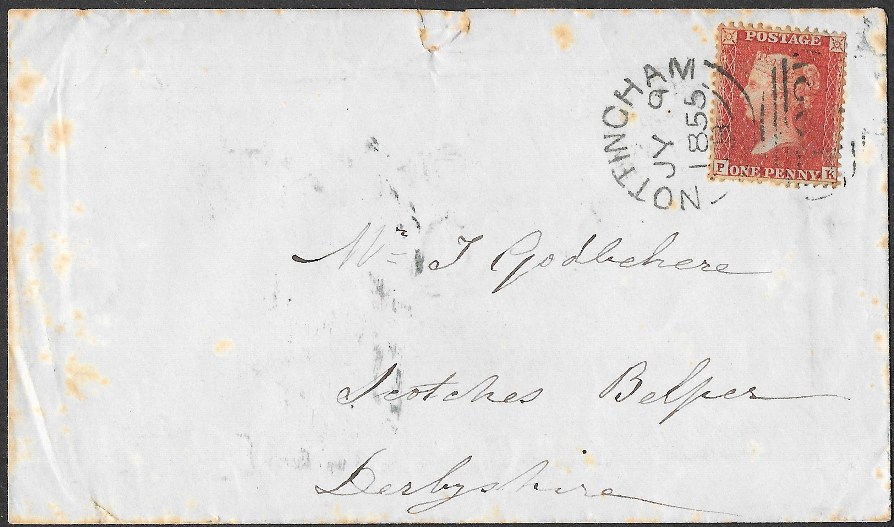 NOTTINGHAM
JY 9
1855
B
POSTAGE
P ONE PENNY K
Mr J Godbehere
Scotches Belper
Derbyshire